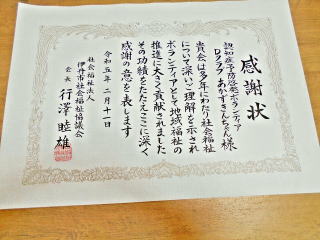 感謝状
認知症予防啓発ボランティア
Dクラブ あかずきんちゃん 様
貴会は多年にわたり社会福祉
について深いご理解を示され
ボランティアとして地域福祉の
推進に大きく貢献されました
その功績をたたえここに深く
感謝の意を表します
令和五年二月十一日
社会福祉法人
伊丹市社会福祉協議会
会長 行澤睦雄